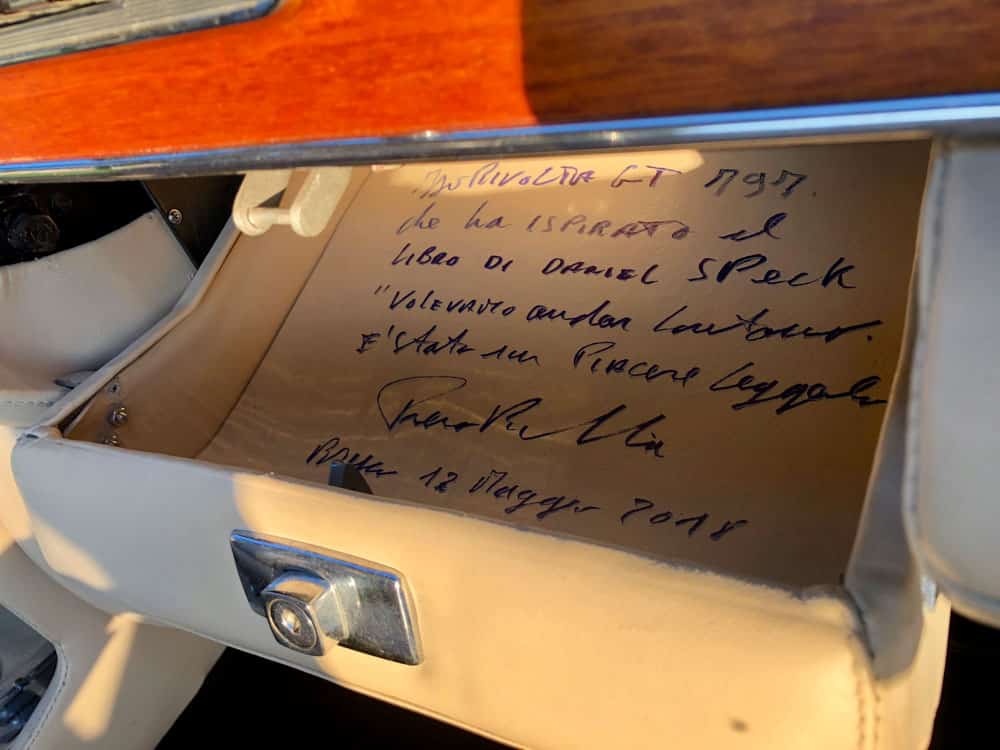 Iso RIVOLTA GT 797.
che ha ISPIRATO il
LIBRO DI DANIEL SPeck
"VOLEVAMO andar lontano.
E' Stato un PIACERE leggerlo
Piero Rivolta
12 Maggio 2018